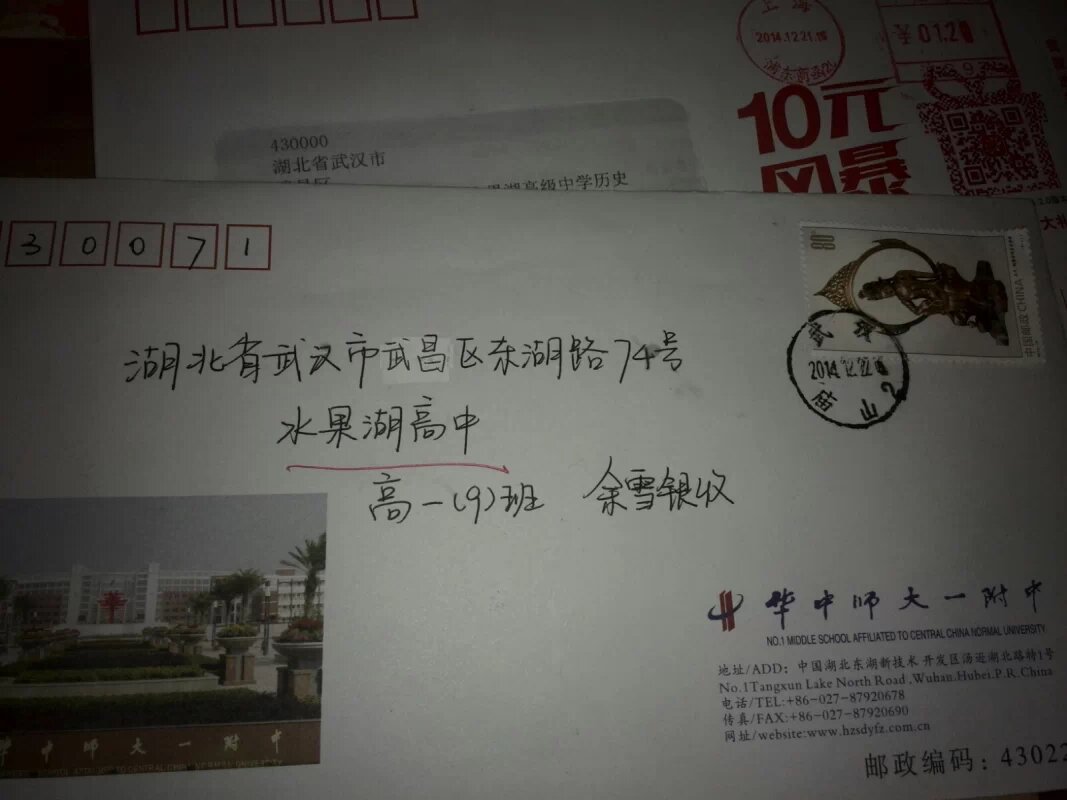 上海
2014.12.21.18
01.20
10元
风暴
430000
湖北省武汉市
湖高级中学历史
30071
中国邮政 CHINA
2014.12.22
湖北省武汉市武昌区东湖路74号
水果湖高中
高一(9)班 余雪银收
华
华中师大一附中
华中师大一附中
NO.1 MIDDLE SCHOOL AFFILIATED TO CENTRAL CHINA NORMAL UNIVERSITY
地址/ADD: 中国湖北东湖新技术开发区汤逊湖北路特1号
No.1Tangxun Lake North Road ,Wuhan.Hubei.P.R.China
电话/TEL:+86-027-87920678
传真/FAX:+86-027-87920690
网址/website:www.hzsdyfz.com.cn
邮政编码: 43022